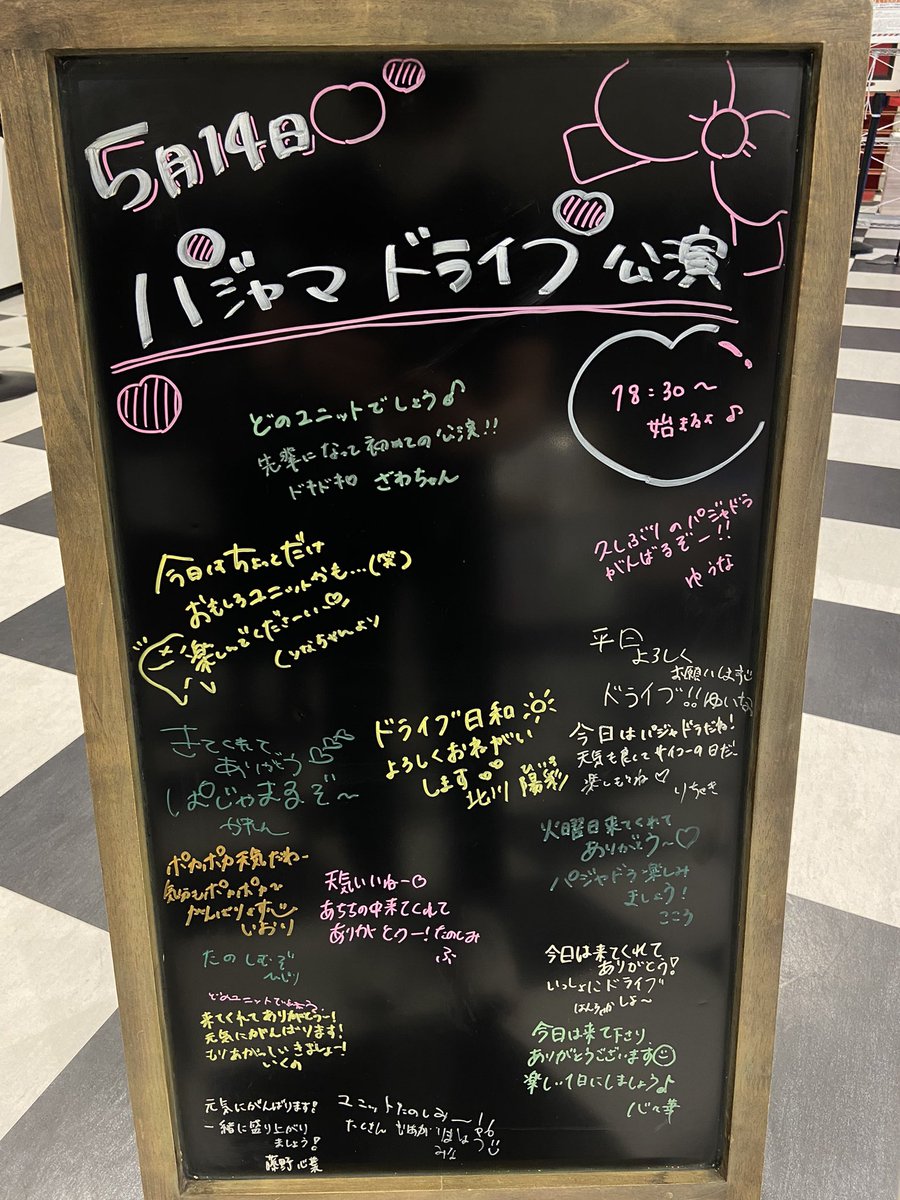 5月14日
パジャマドライブ公演
18:30〜
始まるよ♪
どのユニットでしょう♪
先輩になって初めての公演!!
ドキドキ♡ ざわちゃん
久しぶりのパジャドラ
がんばるぞー!!
ゆうな
今日はちょっとだけ
おもしろユニットかも…(笑)
楽しんでくださーい♡
りなちゃんより
平日
よろしく
お願いします
ドライブ!! ゆいな
きてくれて
ありがとう
ぱじゃまるぞ〜
かれん
ドライブ日和
よろしくおねがい
します♡
北川 陽彩
ひいろ
今日はパジャドラだね!
天気も良くてサイコーの日だ〜
楽しもうね♡
りちゃき
火曜日来てくれて
ありがとう〜♡
パジャドラ楽しみ
ましょう!
こころ
ポカポカ天気だねー
気分もポカポカ〜
がんばります
いおり
天気いいねー♡
あちちの中来てくれて
ありがとうー!たのしみ
ふ
たのしむぞ
ひじり
今日は来てくれて
ありがとう!
いっしょにドライブ
しよ〜
どのユニットでしょう
来てくれてありがとうー!
元気にがんばります!
もりあがっていきましょー!
いくの
今日は来て下さり
ありがとうございます
楽しい1日にしましょう♪
八々華
元気にがんばります!
一緒に盛り上がり
ましょう!
藤野 心葉
ユニットたのしみ
たくさん